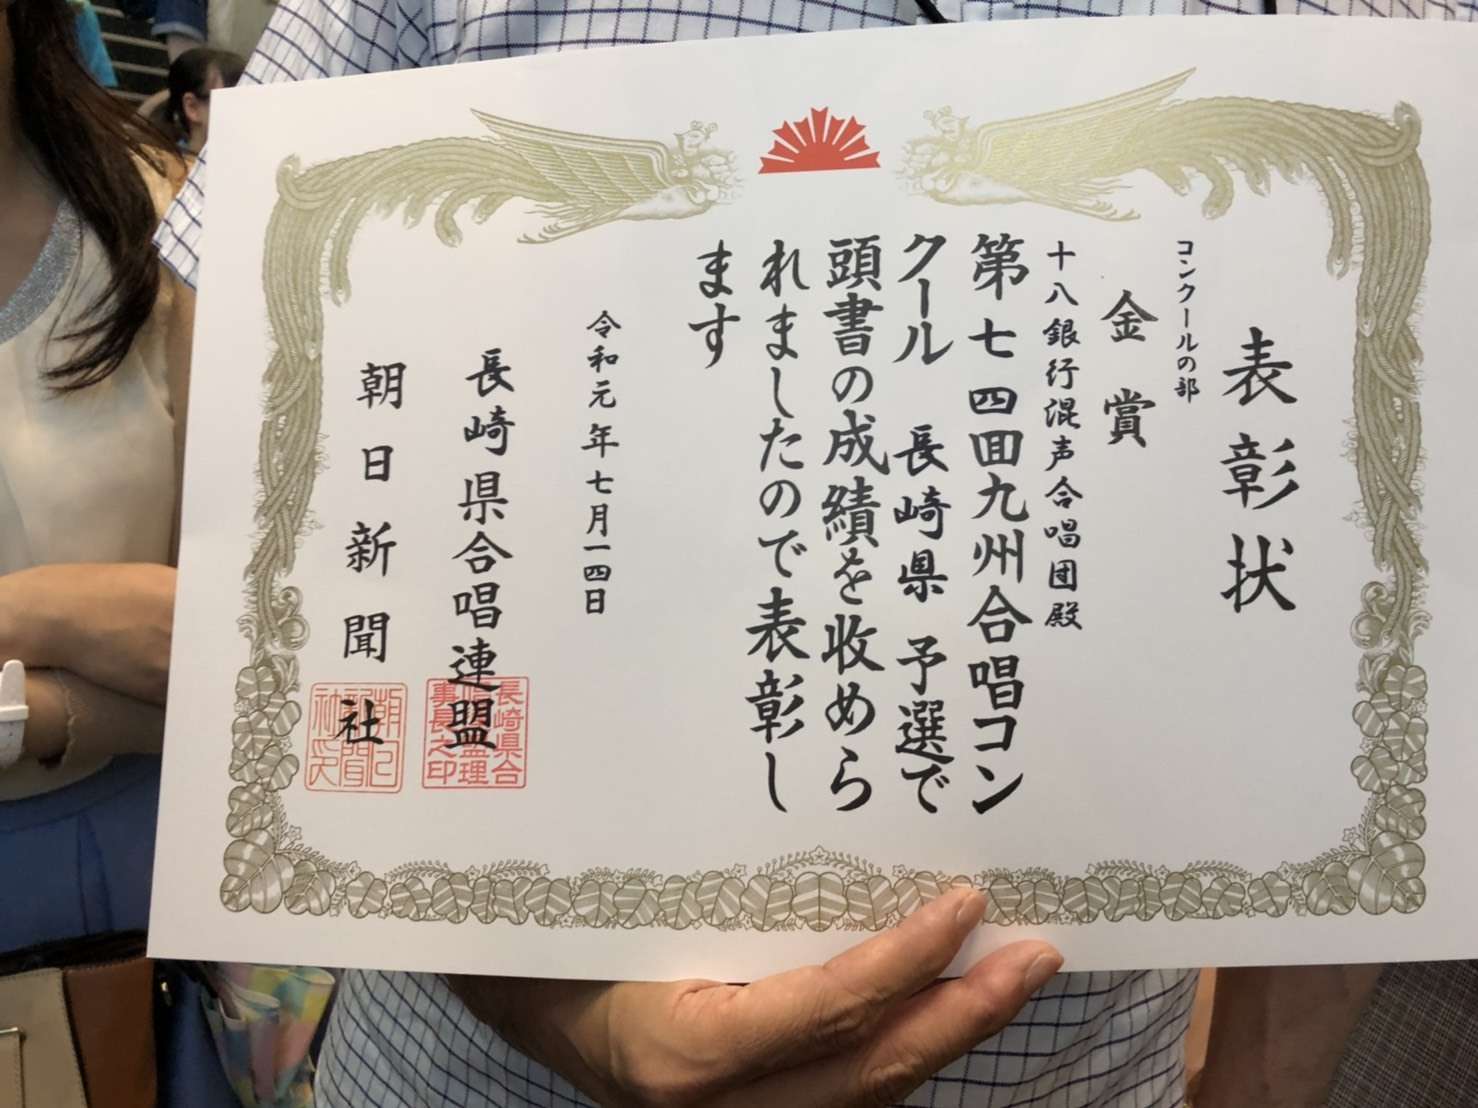 表彰状
コンクールの部
金賞
十八銀行混声合唱団殿
第七四回九州合唱コン
クール 長崎県 予選で
頭書の成績を収めら
れましたので表彰し
ます
令和元年七月一四日
長崎県合唱連盟
長崎県合
唱連盟理
事長之印
朝日新聞社
朝日
新聞
社印